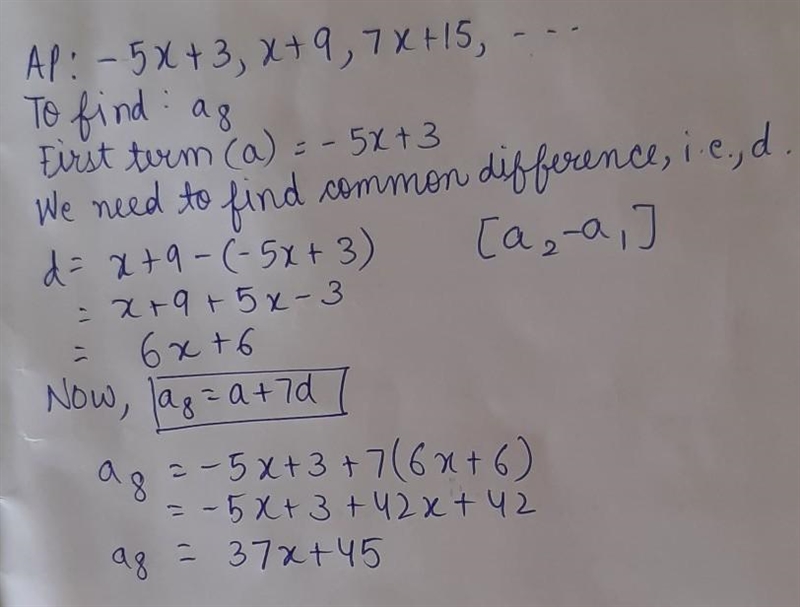 AP: -5x+3, x+9, 7x+15, ---
To find: a₈
First term (a) = -5x+3
We need to find common difference, i.e., d.
d = x+9-(-5x+3) [a₂-a₁]
= x+9+5x-3
= 6x+6
Now, a₈=a+7d
a₈ = -5x+3+7(6x+6)
= -5x+3+42x+42
a₈ = 37x+45